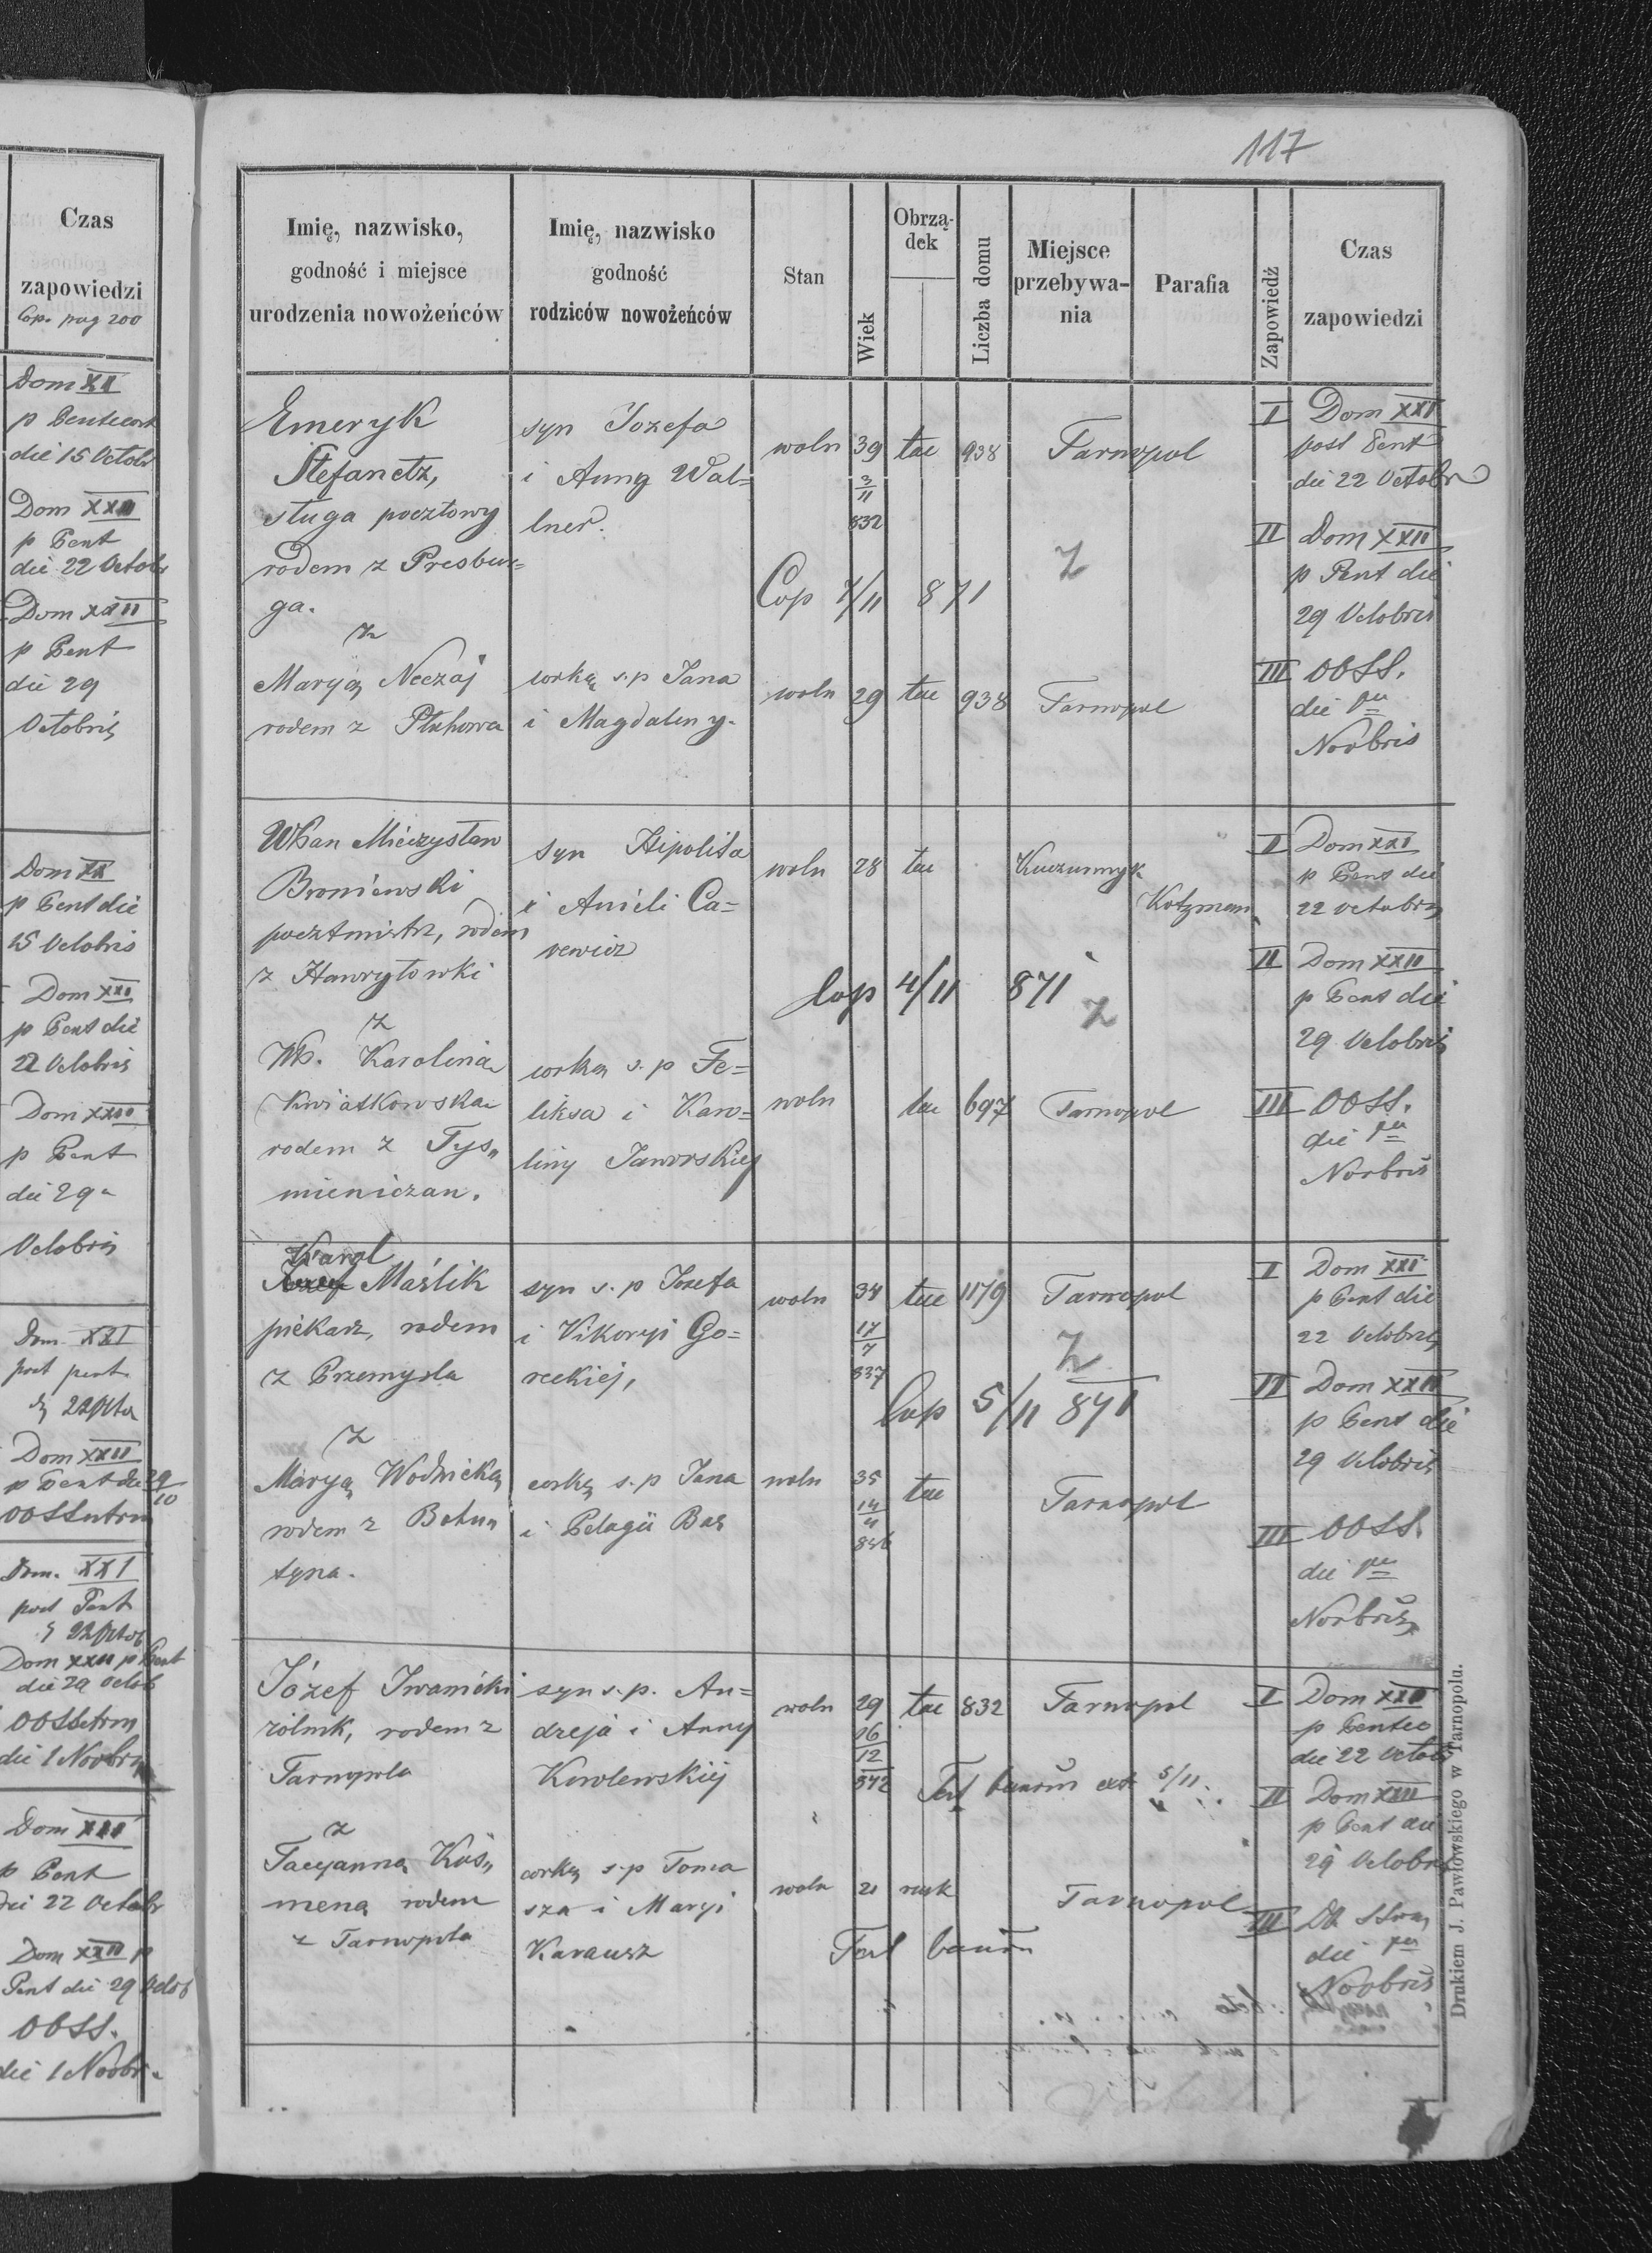 Czas
zapowiedzi
Cop. pag 200
Dom XXI
p Pentecost
die 15 Octobr
Dom XXII
p Pent
die 22 Octobr
Dom XXIII
p Pent
die 29
Octobris
Dom XX
p Pent die
15 Octobris
Dom XXI
p Pent die
22 Octobris
Dom XXII
p Pent
die 29
Octobris
Dom. XXI
post pent
Dom XXII
p Pent die 29/10
OOSSntrm
Dom. XXI
post Pent
Dom XXII p Pent
die 29 Octob
OOSSntrm
die 1 Novbr
Dom XXI
p Pent
die 22 Octobr
Dom XXII p
Pent die 29 Octob
OOSS.
die 1 Novbr
117
Imię, nazwisko,
godność i miejsce
urodzenia nowożeńców
Imię, nazwisko
godność
rodziców nowożeńców
Stan
Wiek
Obrzą-
dek
Liczba domu
Miejsce
przebywa-
nia
Parafia
Zapowiedź
Czas
zapowiedzi
Emeryk
Stefanetz,
sługa pocztowy
rodem z Presbur=
ga.
z
Maryą Neczaj
rodem z Płuhowa
syn Jozefa
i Anny Wal=
lner.
corką s.p Jana
i Magdaleny.
woln 39 łac 938 Tarnopol
3/11
832
Cop 7/11 871
Z
woln 29 łac 938 Tarnopol
I Dom XXI
post Pent
die 22 Octobr
II Dom XXII
p Pent die
29 Octobris
III OOSS.
die 1a
Novbris
WPan Mieczysław
Broniewski
pocztmistrz, rodem
z Hawryłowki
z
WP. Karolina
Kwiatkowska
rodem z Tyś„
mieniczan.
syn Hipolita
i Anieli Ca=
rewicz
corką s.p Fe=
liksa i Karo=
liny Jaworskiej
woln 28 łac Kuczurmyk
Kotzman
Cop 4/11 871
Z
woln łac 697 Tarnopol
I Dom XXI
p Pent die
22 octobris
II Dom XXII
p Pent die
29 Octobris
III OOSS.
die 1a
Novbris
Karol
Józef Maślik
piekarz, rodem
z Przemyśla
z
Maryą Wodnicką
rodem z Bohu„
tyna.
syn s.p Jozefa
i Wiktoryi Go=
reckiej,
corką s.p Jana
i Pelagii Bas
woln 34 łac 1179 Tarnopol
17/7
837
Z
Cop 5/11 871
woln 35 łac Tarnopol
14/11
836
I Dom XXI
p Pent die
22 Octobris
II Dom XXII
p Pent die
29 Octobris
III OOSS.
die 1a
Novbris
Józef Iwanicki
rolnik, rodem z
Tarnopola
z
Tacyanna Kuś„
mena rodem
z Tarnopola
syn s.p. An=
dzeja i Anny
Kowlewskiej
corką s.p Toma
sza i Maryi
Karausz
woln 29 łac 832 Tarnopol
16/12
842
Test bannor ext 5/11.
woln 21 rusk Tarnopol
Test bannor
I Dom XXI
p Pentec
die 22 Octobr
II Dom XXII
p Pent die
29 Octobris
III
die 1a
Novbris
Drukiem J. Pawłowskiego w Tarnopolu.